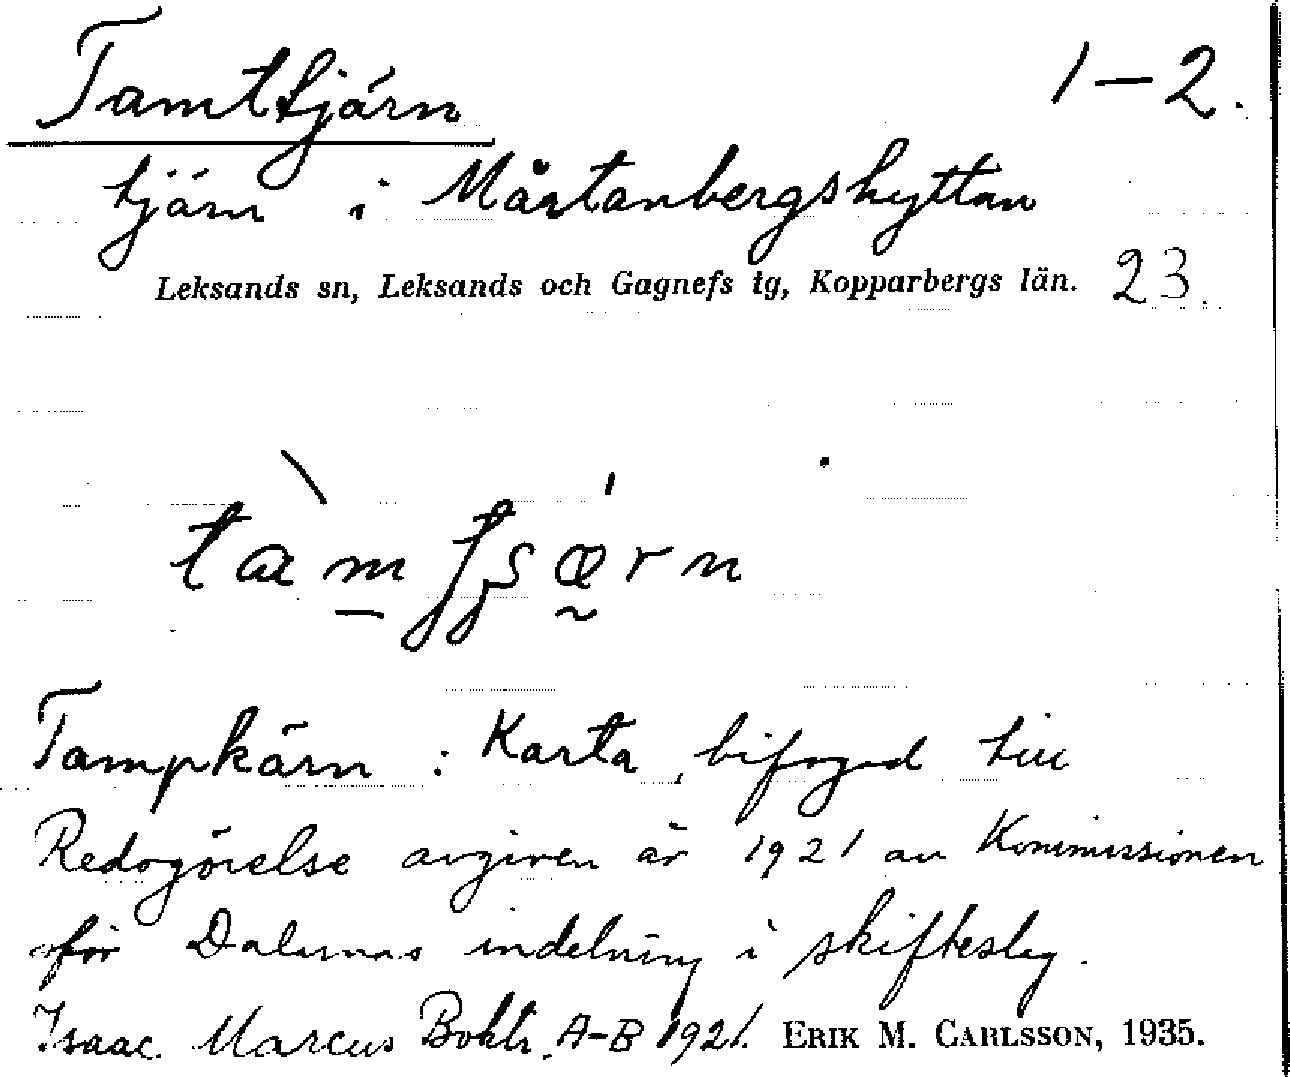 Tamttjärn 1-2.
tjärn i Mårtanbergshyttan
Leksands sn, Leksands och Gagnefs tg, Kopparbergs län. 23
Tampkärn : Karta, bifogad till
Redogörelse avgiven år 1921 av Kommissionen
för Dalarnas indelning i skifteslag.
Isaac Marcus Boktr. A-B 1921. ERIK M. CARLSSON, 1935.